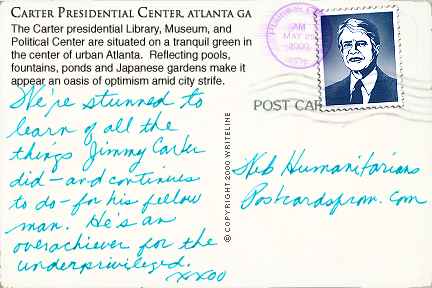 CARTER PRESIDENTIAL CENTER, ATLANTA GA
The Carter presidential Library, Museum, and
Political Center are situated on a tranquil green in
the center of urban Atlanta.  Reflecting pools,
fountains, ponds and Japanese gardens make it
appear an oasis of optimism amid city strife.
We're stunned to
learn of all the
things Jimmy Carter
did - and continues
to do - for his fellow
man. He's an
overachiever for the
underprivileged.
xxoo
© COPYRIGHT 2000 WRITELINE
AM
MAY
2000
POST CAR
Web Humanitarians
Postcardsfrom.com